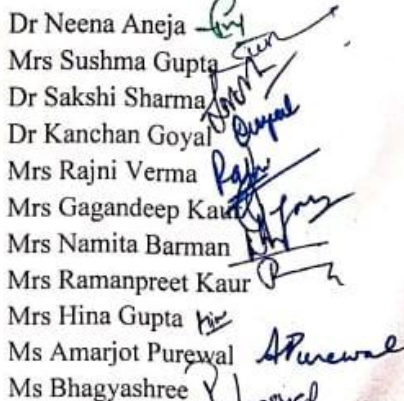 Dr Neena Aneja
Mrs Sushma Gupta
Dr Sakshi Sharma
Dr Kanchan Goyal Goyal
Mrs Rajni Verma Rajni
Mrs Gagandeep Kaur
Mrs Namita Barman
Mrs Ramanpreet Kaur
Mrs Hina Gupta
Ms Amarjot Purewal APurewal
Ms Bhagyashree